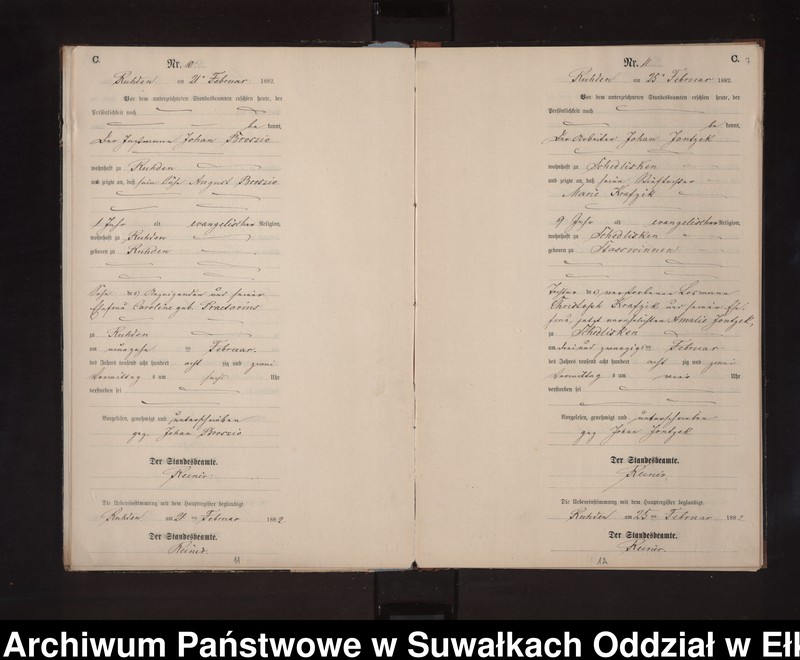 C.
Nr. 10
Ruhden am 21n Februar 1882.
Vor dem unterzeichneten Standesbeamten erschien heute, der
Persönlichkeit nach
be kannt,
Der Johan Brossio
wohnhaft zu Ruhden
und zeigte an, daß sein Sohn August Brossio
1 Jahr alt evangelischer Religion,
wohnhaft zu Ruhden
geboren zu Ruhden
Sohn des Anzeigenden und seiner
Ehefrau Caroline geb. Praetorius
zu Ruhden
am Februar.
des Jahres tausend acht hundert acht zig und zwei
Vormittag s um sechs Uhr
verstorben sei
Vorgelesen, genehmigt und unterschrieben
gez. Johan Brossio
Der Standesbeamte.
Die Uebereinstimmung mit dem Hauptregister beglaubigt.
Ruhden am 21 ten Februar 1882
Der Standesbeamte.
11
C.
Nr. 11
Ruhden am 25n Februar 1882.
Vor dem unterzeichneten Standesbeamten erschien heute, der
Persönlichkeit nach
be kannt,
Der Arbeiter Johan Jontzek
wohnhaft zu Schedlisken
und zeigte an, daß seine Stieftochter
Marie Krafzik
9 Jahr alt evangelischer Religion,
wohnhaft zu Schedlisken
geboren zu Staswinnen
Tochter des verstorbenen Losmann
Christoph Krafzik und seiner Ehe-
frau, jetzt verehelichten Amalie Jontzek,
zu Schedlisken
am drei und zwanzigsten Februar
des Jahres tausend acht hundert acht zig und zwei
Vormittag s um Uhr
verstorben sei
Vorgelesen, genehmigt und unterschrieben
gez Johan Jontzek
Der Standesbeamte.
Die Uebereinstimmung mit dem Hauptregister beglaubigt.
Ruhden am 25 ten Februar 1882
Der Standesbeamte.
12
Archiwum Państwowe w Suwałkach Oddział w Ełk